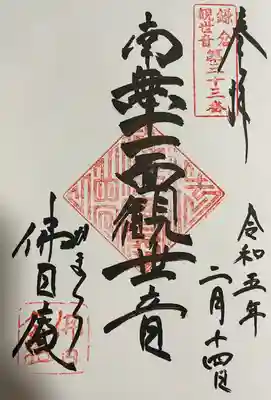 奉拝
鎌倉
観世音
第三十三番
南無十一面観世音
令和五年
二月十四日
かまくら
佛日庵